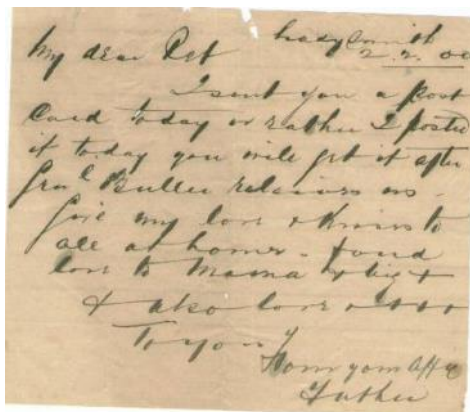 Ladysmith
My dear Pet 2.2.00
I sent you a post
Card today or rather I posted
it today you will get it after
Genl Buller relieves us -
Give my love & kisses to
all at home - fond
love to Mama &
& also love &
To you
From your Affte
Father